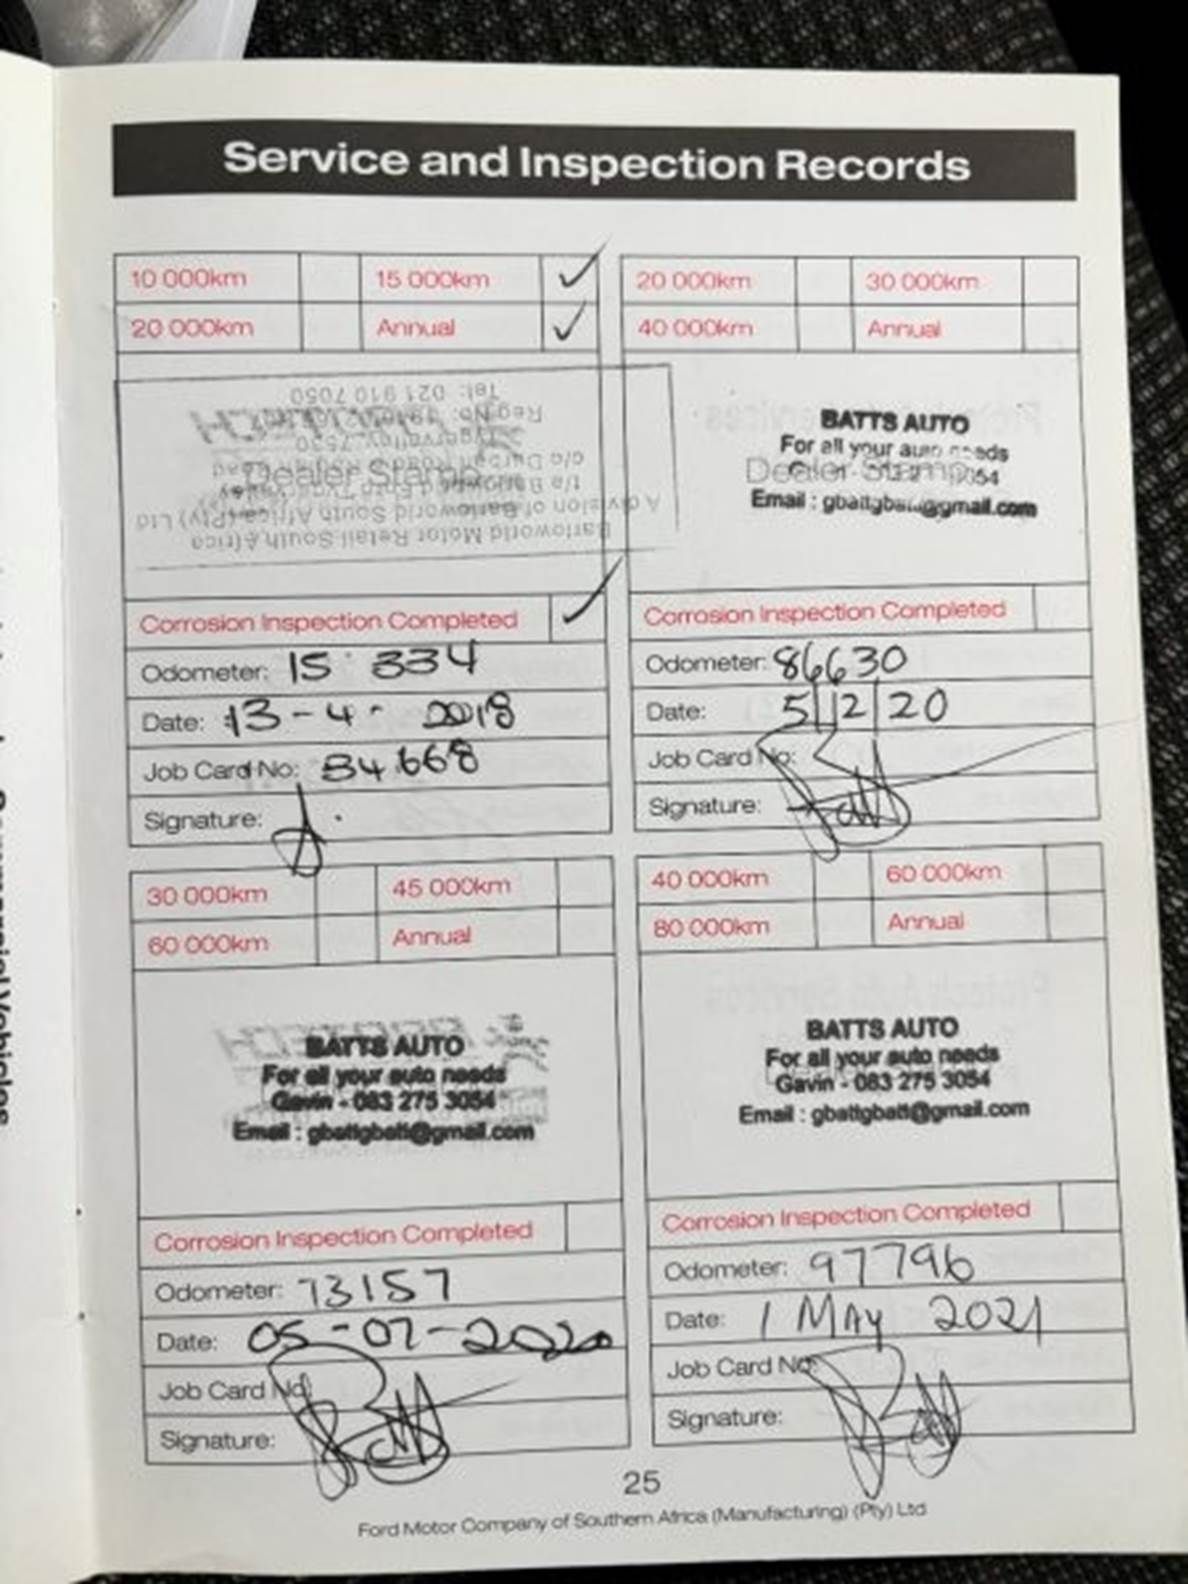 Service and Inspection Records
10 000km 15 000km ✓
20 000km Annual ✓
Tel: 021 910 7050
Reg No:
Tygervalley, 7530
c/o Durban Road &
Dealer Stamp
t/a Barloworld
A division of Barloworld South Africa (Pty) Ltd
Barloworld Motor Retail South Africa
Corrosion Inspection Completed ✓
Odometer: 15 334
Date: 13-4-2018
Job Card No: 34668
Signature:
20 000km 30 000km
40 000km Annual
BATTS AUTO
For all your auto needs
Dealer Stamp 3054
Email : gbattgbatt@gmail.com
Corrosion Inspection Completed
Odometer: 86630
Date: 5/12/20
Job Card No:
Signature:
30 000km 45 000km
60 000km Annual
BATTS AUTO
For all your auto needs
Gavin - 083 275 3054
Email : gbattgbatt@gmail.com
Corrosion Inspection Completed
Odometer: 73157
Date: 05-07-2020
Job Card No:
Signature:
40 000km 60 000km
80 000km Annual
BATTS AUTO
For all your auto needs
Gavin - 083 275 3054
Email : gbattgbatt@gmail.com
Corrosion Inspection Completed
Odometer: 97796
Date: 1 MAY 2021
Job Card No:
Signature:
25
Ford Motor Company of Southern Africa (Manufacturing) (Pty) Ltd
Commercial Vehicles